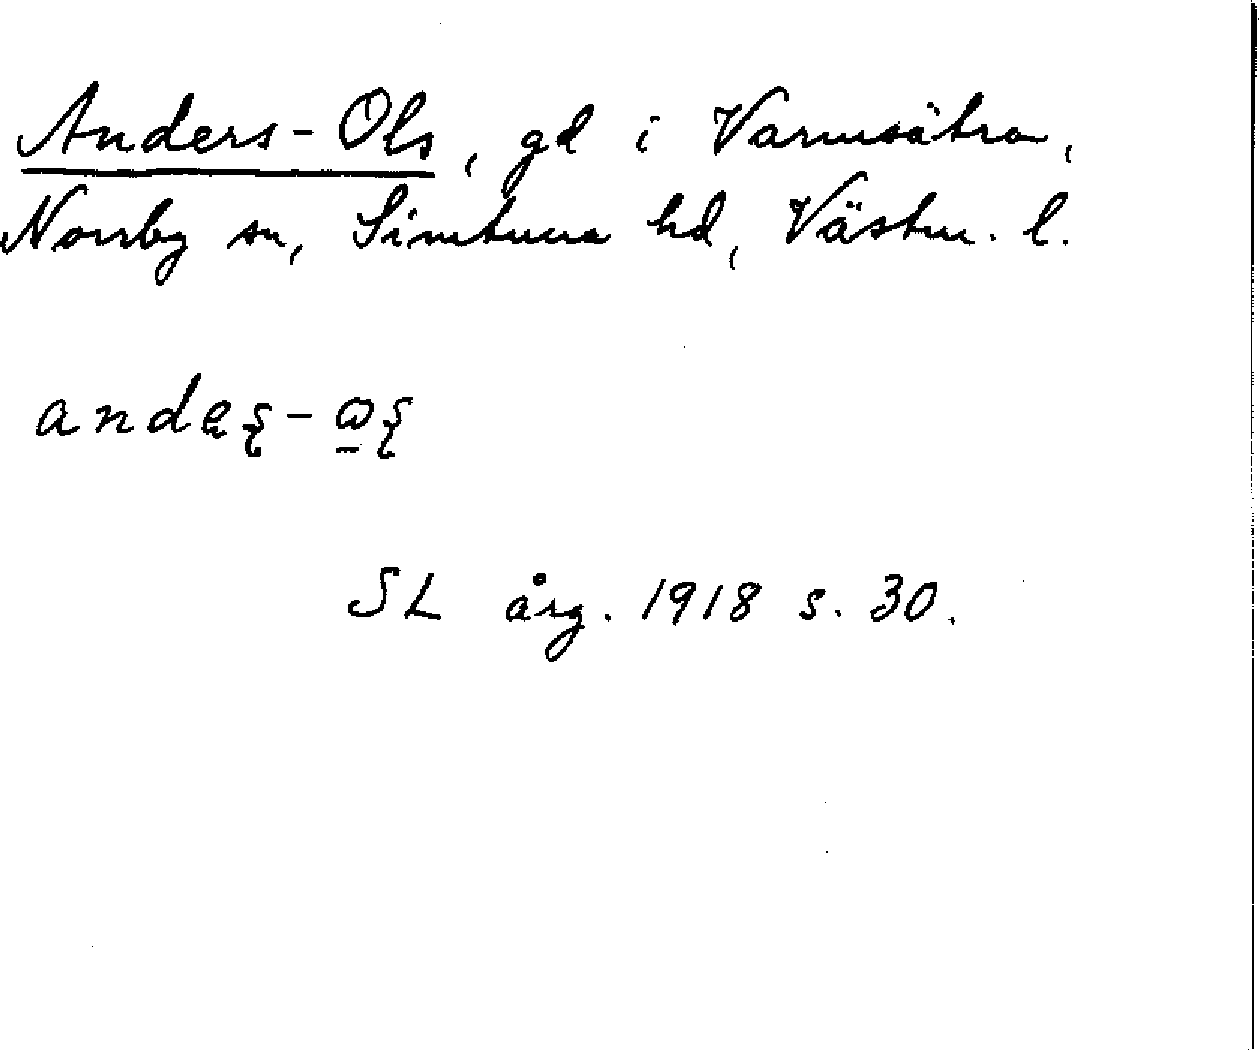 Anders-Ols, gd i Varmsätra,
Norrby sn, Simtuna hd, Västm. l.
SL årg. 1918 s. 30.